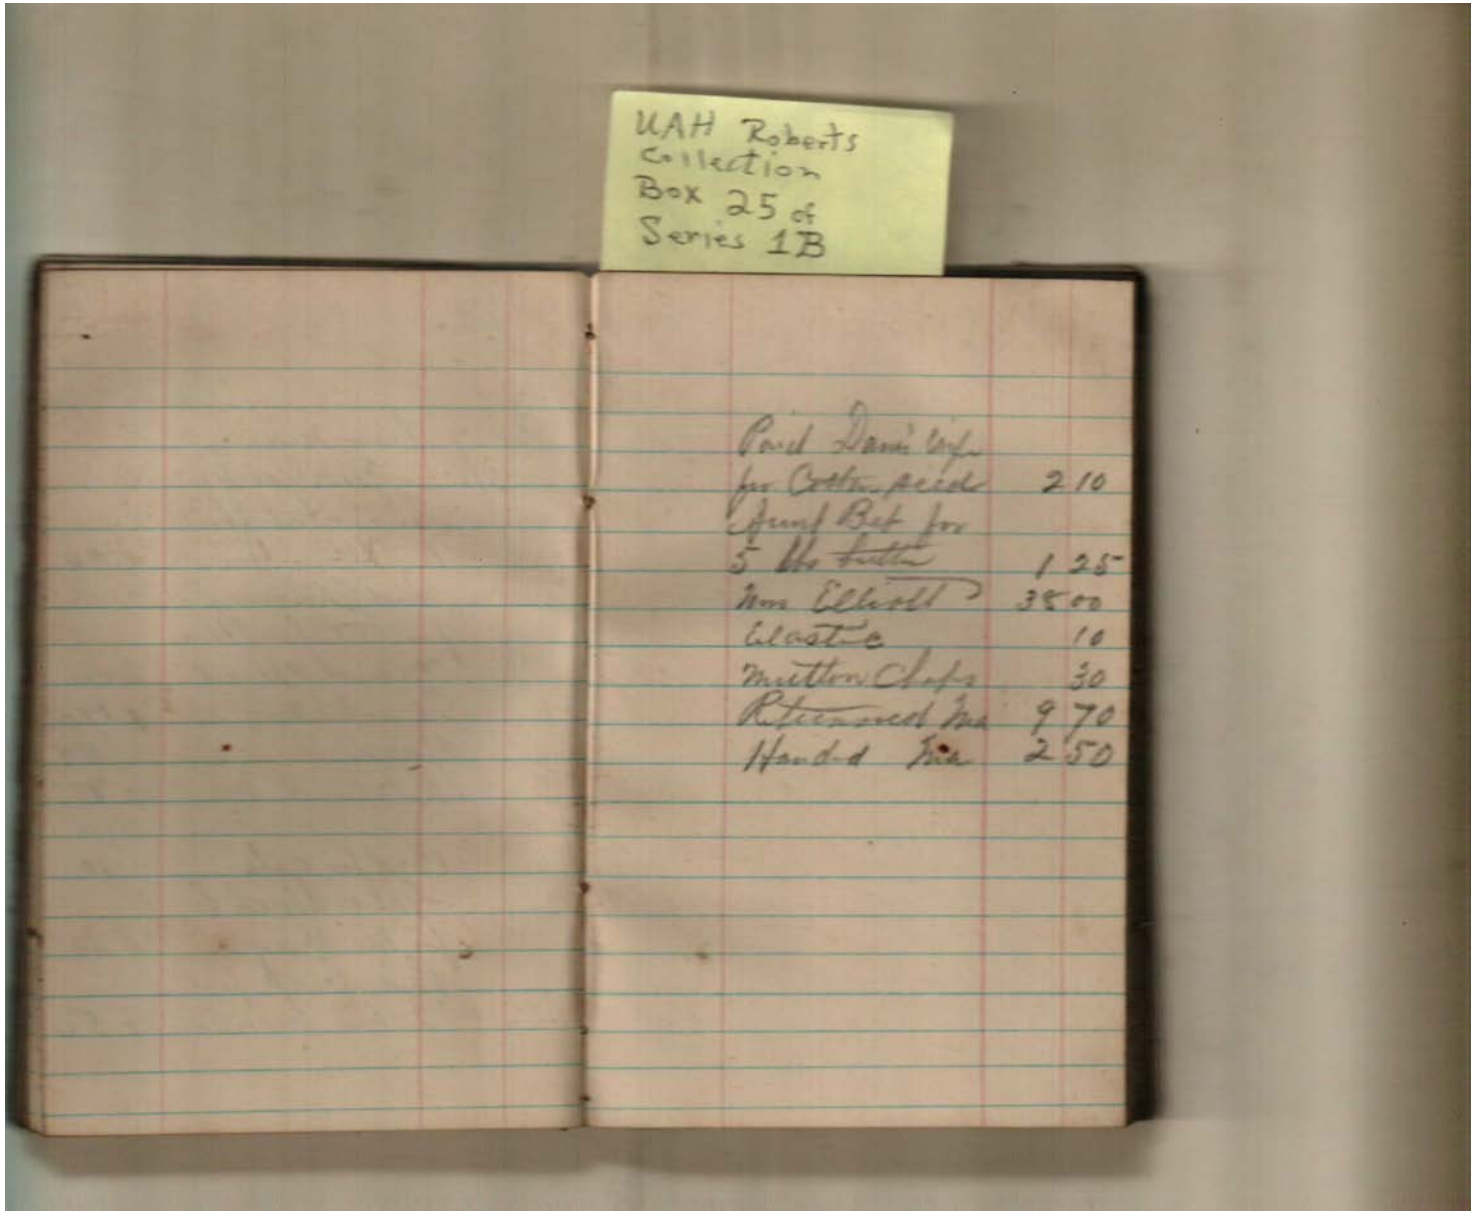 UAH Roberts
Collection
Box 25 of
Series 1B
Paid Dan's wife
for Cotton seed 2 10
Aunt Bet for
5 lbs butter 1 25
Elliott 00
Elastic 10
Mutton Chops 30
Returned Ma 9 70
Handed Ma 2 50